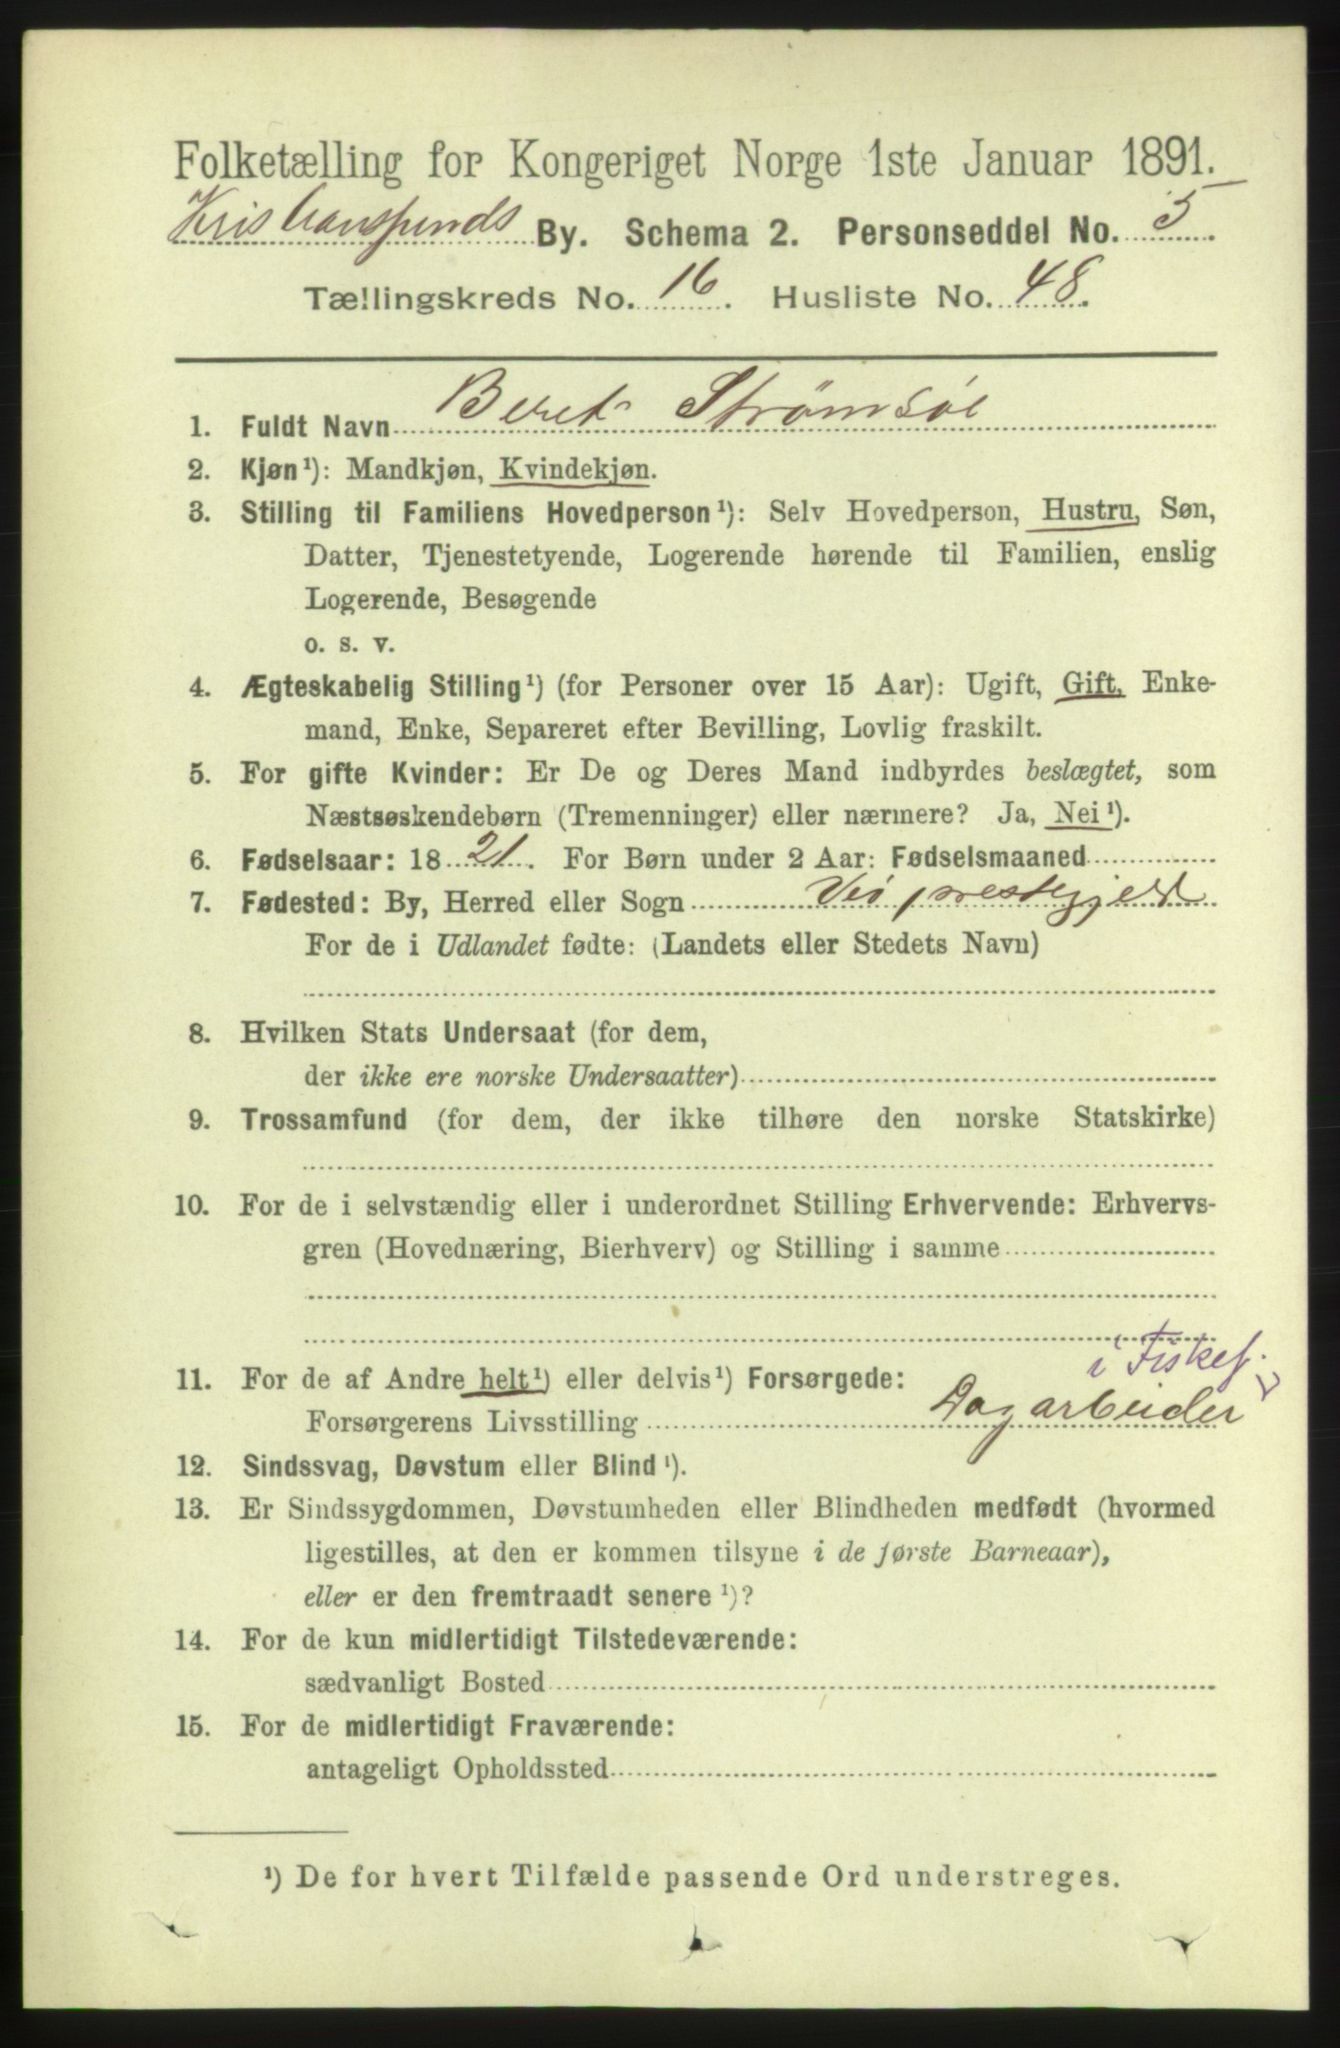 Folketælling for Kongeriget Norge 1ste Januar 1891.
Kristianssunds By. Schema 2. Personseddel No. 5
Tællingskreds No. 16. Husliste No. 48.
1. Fuldt Navn Beret Strømsøe
2. Kjøn ¹): Mandkjøn, Kvindekjøn.
3. Stilling til Familiens Hovedperson ¹): Selv Hovedperson, Hustru, Søn,
Datter, Tjenestetyende, Logerende hørende til Familien, enslig
Logerende, Besøgende
o. s. v.
4. Ægteskabelig Stilling ¹) (for Personer over 15 Aar): Ugift, Gift, Enke-
mand, Enke, Separeret efter Bevilling, Lovlig fraskilt.
5. For gifte Kvinder: Er De og Deres Mand indbyrdes beslægtet, som
Næstsøskendebørn (Tremenninger) eller nærmere? Ja, Nei ¹).
6. Fødselsaar: 18 21. For Børn under 2 Aar: Fødselsmaaned
7. Fødested: By, Herred eller Sogn Veø prestegjeld
For de i Udlandet fødte: (Landets eller Stedets Navn)
8. Hvilken Stats Undersaat (for dem,
der ikke ere norske Undersaatter)
9. Trossamfund (for dem, der ikke tilhøre den norske Statskirke)
10. For de i selvstændig eller i underordnet Stilling Erhvervende: Erhvervs-
gren (Hovednæring, Bierhverv) og Stilling i samme
i Fiskef.
11. For de af Andre helt ¹) eller delvis ¹) Forsørgede:
Forsørgerens Livsstilling Dagarbeider
12. Sindssvag, Døvstum eller Blind ¹).
13. Er Sindssygdommen, Døvstumheden eller Blindheden medfødt (hvormed
ligestilles, at den er kommen tilsyne i de første Barneaar),
eller er den fremtraadt senere ¹)?
14. For de kun midlertidigt Tilstedeværende:
sædvanligt Bosted
15. For de midlertidigt Fraværende:
antageligt Opholdssted
¹) De for hvert Tilfælde passende Ord understreges.